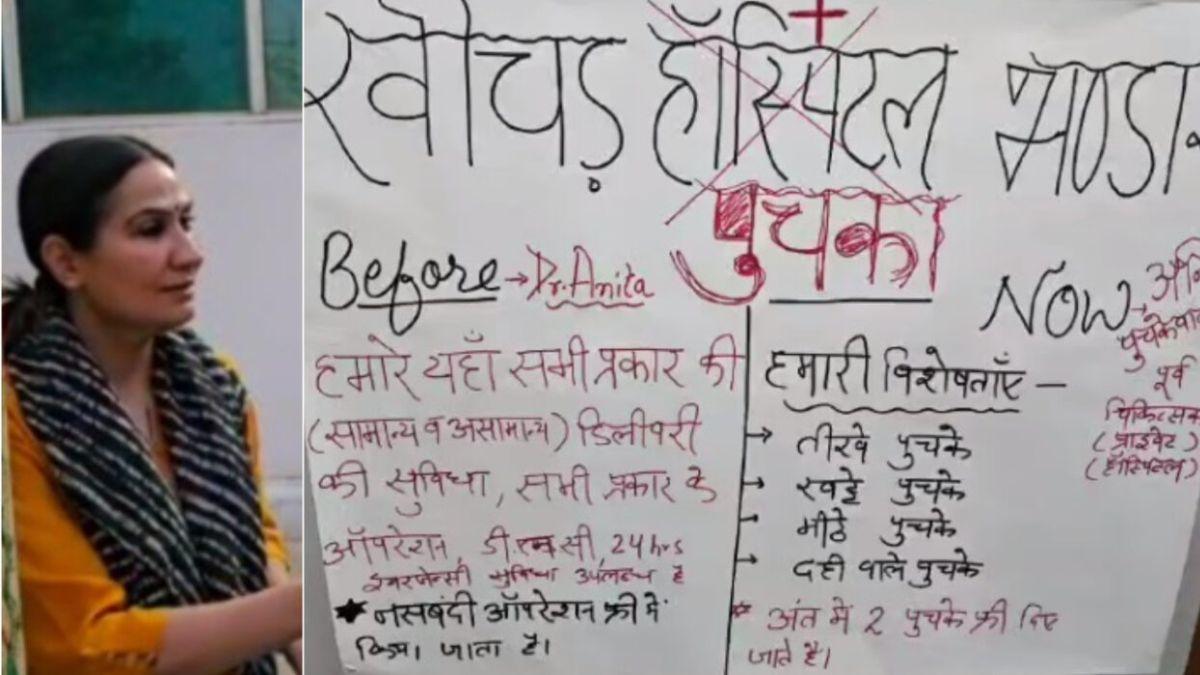 खीचड़ हॉस्पिटल
पुचका
Before → Dr. Anita
हमारे यहाँ सभी प्रकार की
(सामान्य व असामान्य) डिलीवरी
की सुविधा, सभी प्रकार के
ऑपरेशन, डी.एन.सी, 24 hrs
इमरजेन्सी सुविधा उपलब्ध है
★ नसबंदी ऑपरेशन फ्री में
किया जाता है।
Now →
पूर्व
चिकित्सक
(प्राइवेट)
(हॉस्पिटल)
हमारी विशेषताएँ –
→ तीखे पुचके
→ खट्टे पुचके
→ मीठे पुचके
→ दही वाले पुचके
* अंत में 2 पुचके फ्री दिए
जाते है।